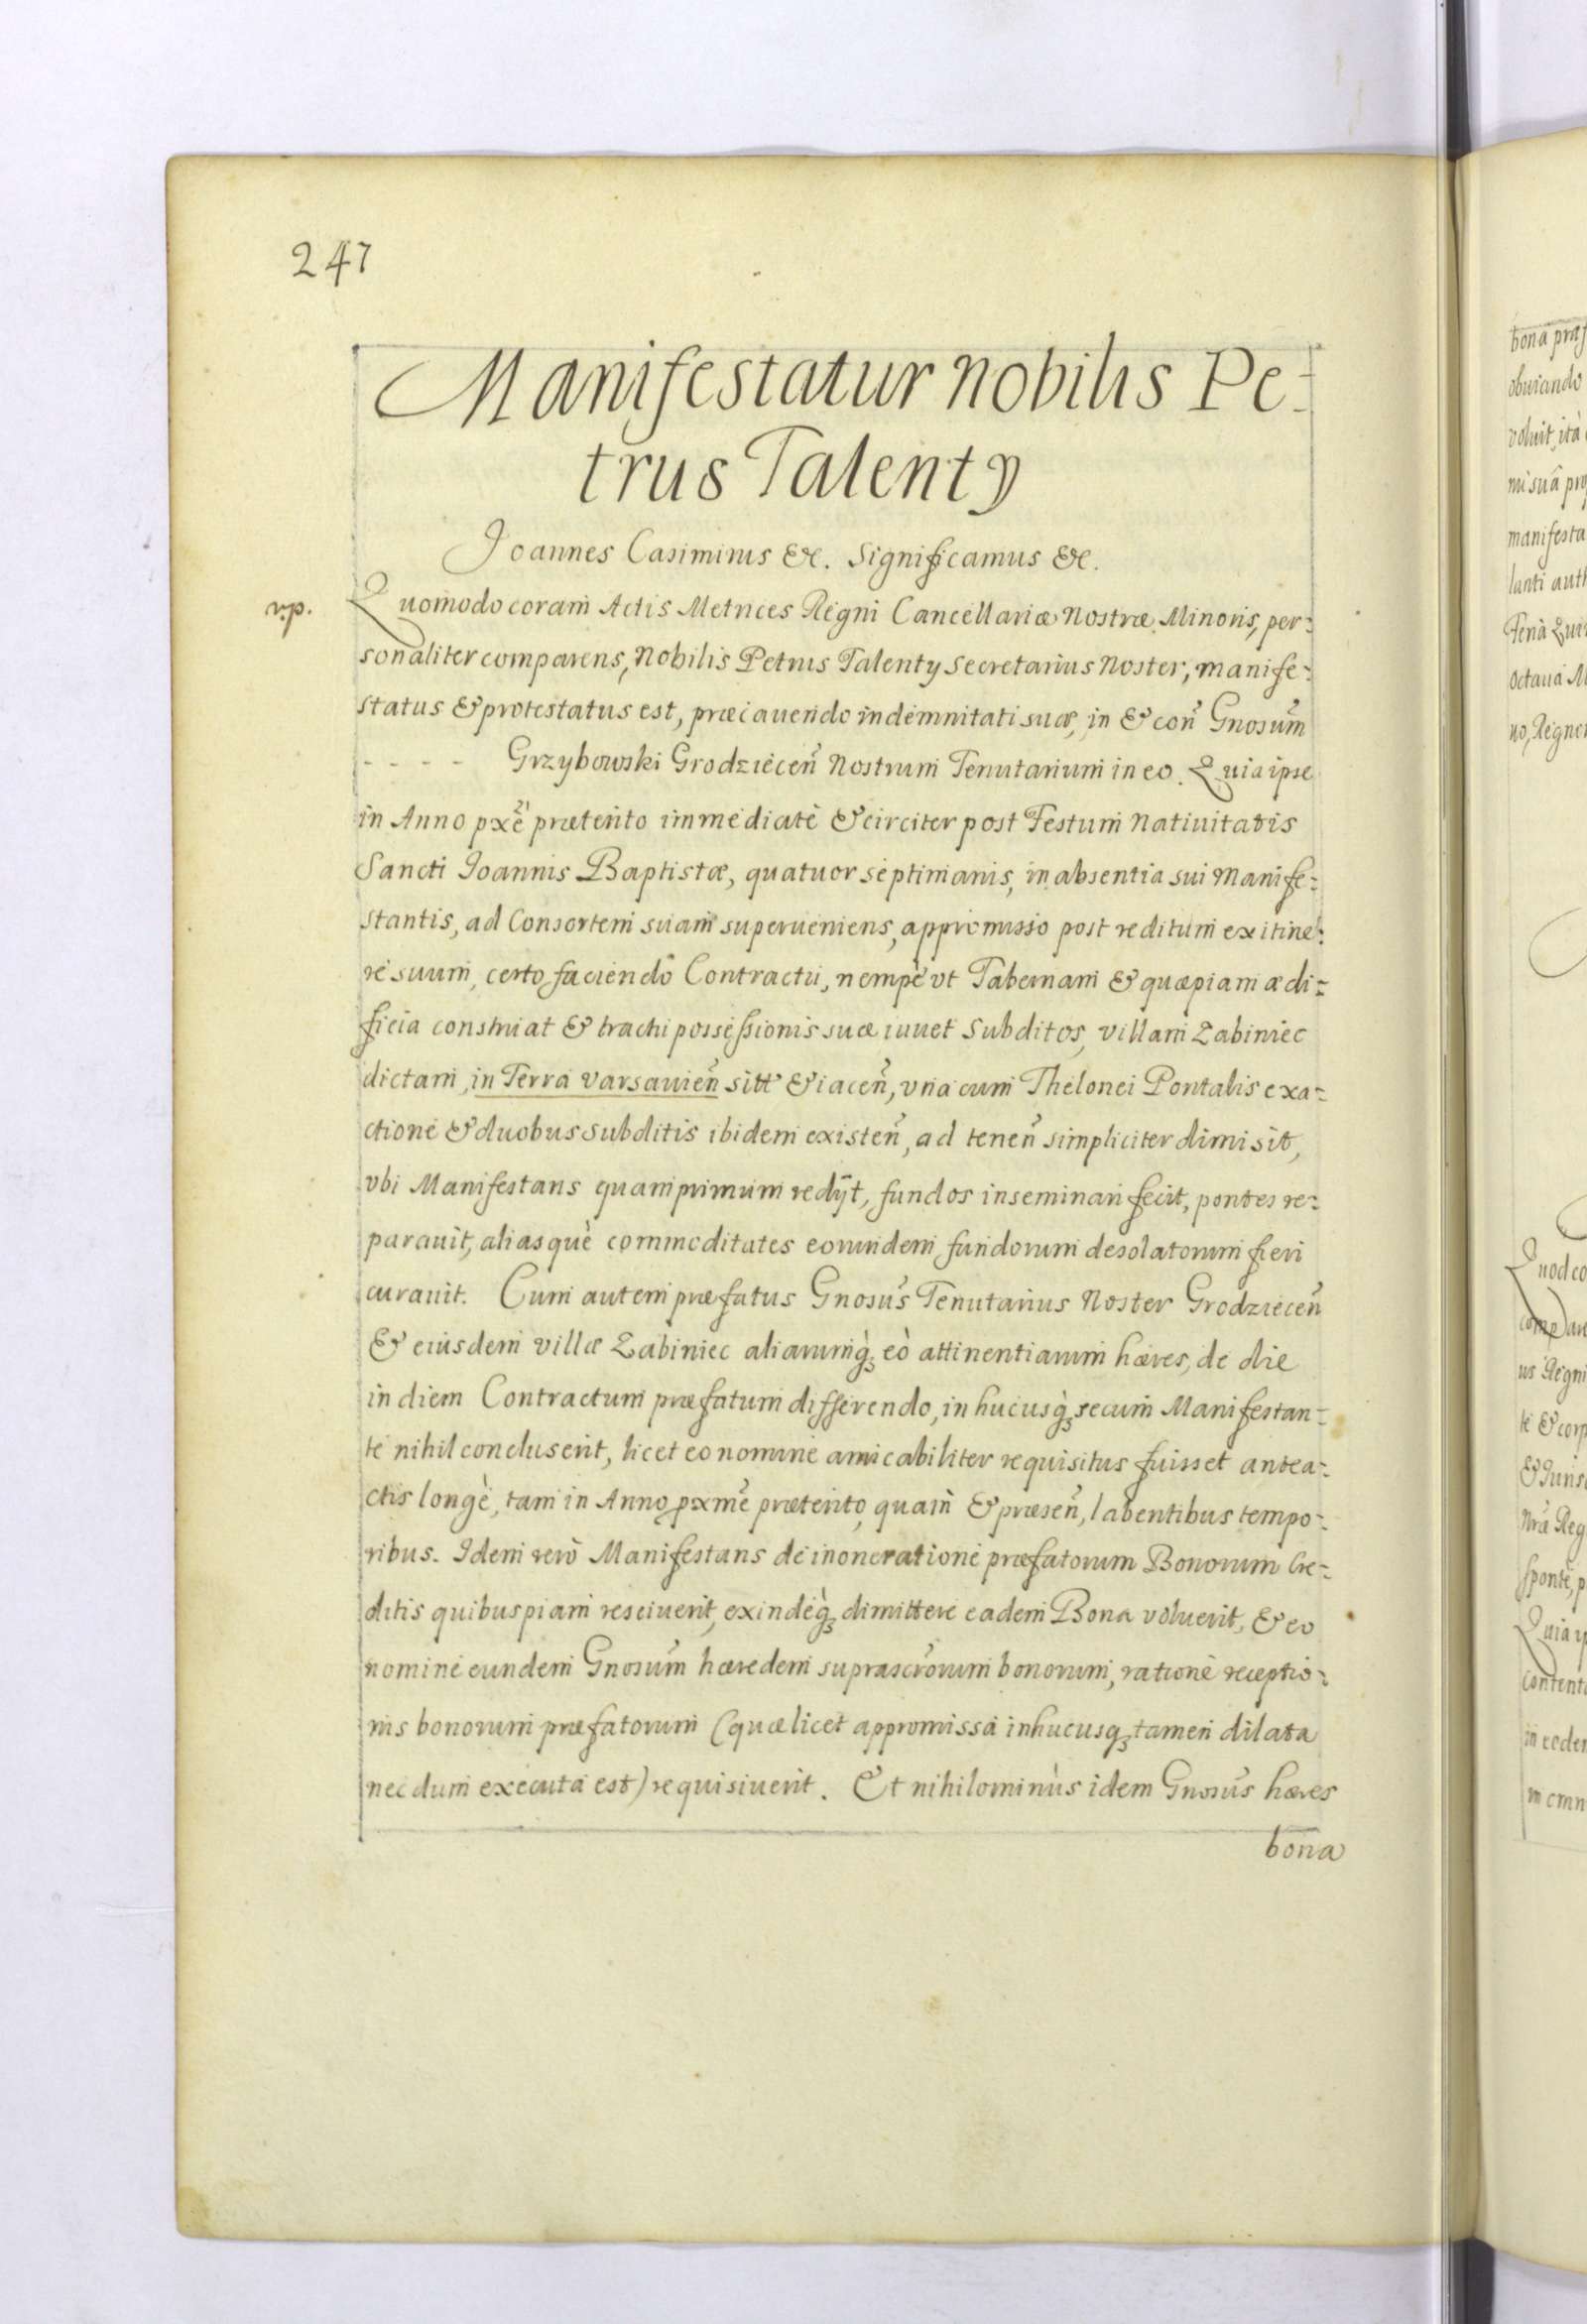 247
Manifestatur nobilis Pe-
trus Talenty
Joannes Casimirus &c. Significamus &c.
Quomodo coram Actis Metrices Regni Cancellariæ Nostræ Minoris, per-
sonaliter comparens, Nobilis Petrus Talenty Secretarius Noster, manife-
status & protestatus est, præcauendo indemnitati suæ, in & con̄ Gnosum̄
- - - - Grzybowski Grodziecen̄ Nostrum Tenutarium in eo. Quia ipse
in Anno pxē præterito immediatè & circiter post Festum Natiuitatis
Sancti Joannis Baptistæ, quatuor septimanis, in absentia sui Manife-
stantis, ad Consortem suam superueniens, appromisso post reditum ex itine-
re suum, certo faciendo Contractu, nempè vt Tabernam & quæpiam ædi-
ficia construat & tractu possessionis suæ iuuet Subditos, villam Zabiniec
dictam, in Terra Varsauien̄ sitt & iacen̄, vna cum Thelonei Pontalis exa-
ctione & duobus subditis ibidem existen̄, ad tenen̄ simpliciter dimisit,
vbi Manifestans quamprimum redijt, fundos inseminari fecit, pontes re-
parauit, aliasquè commoditates eorundem fundorum desolatorum fieri
curauit. Cum autem præfatus Gnosus̄ Tenutarius Noster Grodziecen̄
& eiusdem villæ Zabiniec aliarumq; eò attinentiarum hæres, de die
in diem Contractum præfatum differendo, in hucusq; secum Manifestan-
te nihil concluserit, licet eo nomine amicabiliter requisitus fuisset antea-
ctis longè, tam in Anno pxmē præterito, quam & præsen̄, labentibus tempo-
ribus. Idem verò Manifestans de inoneratione præfatorum Bonorum Cre-
ditis quibuspiam resciuerit, exindeq; dimittere eadem Bona voluerit, & eo
nomine eundem Gnosum̄ hæredem suprascrorum̄ bonorum, ratione receptio-
nis bonorum præfatorum (quæ licet appromissa inhucusq; tamen dilata
nec dum executa est) requisiuerit. Et nihilominùs idem Gnosus̄ hæres
bona